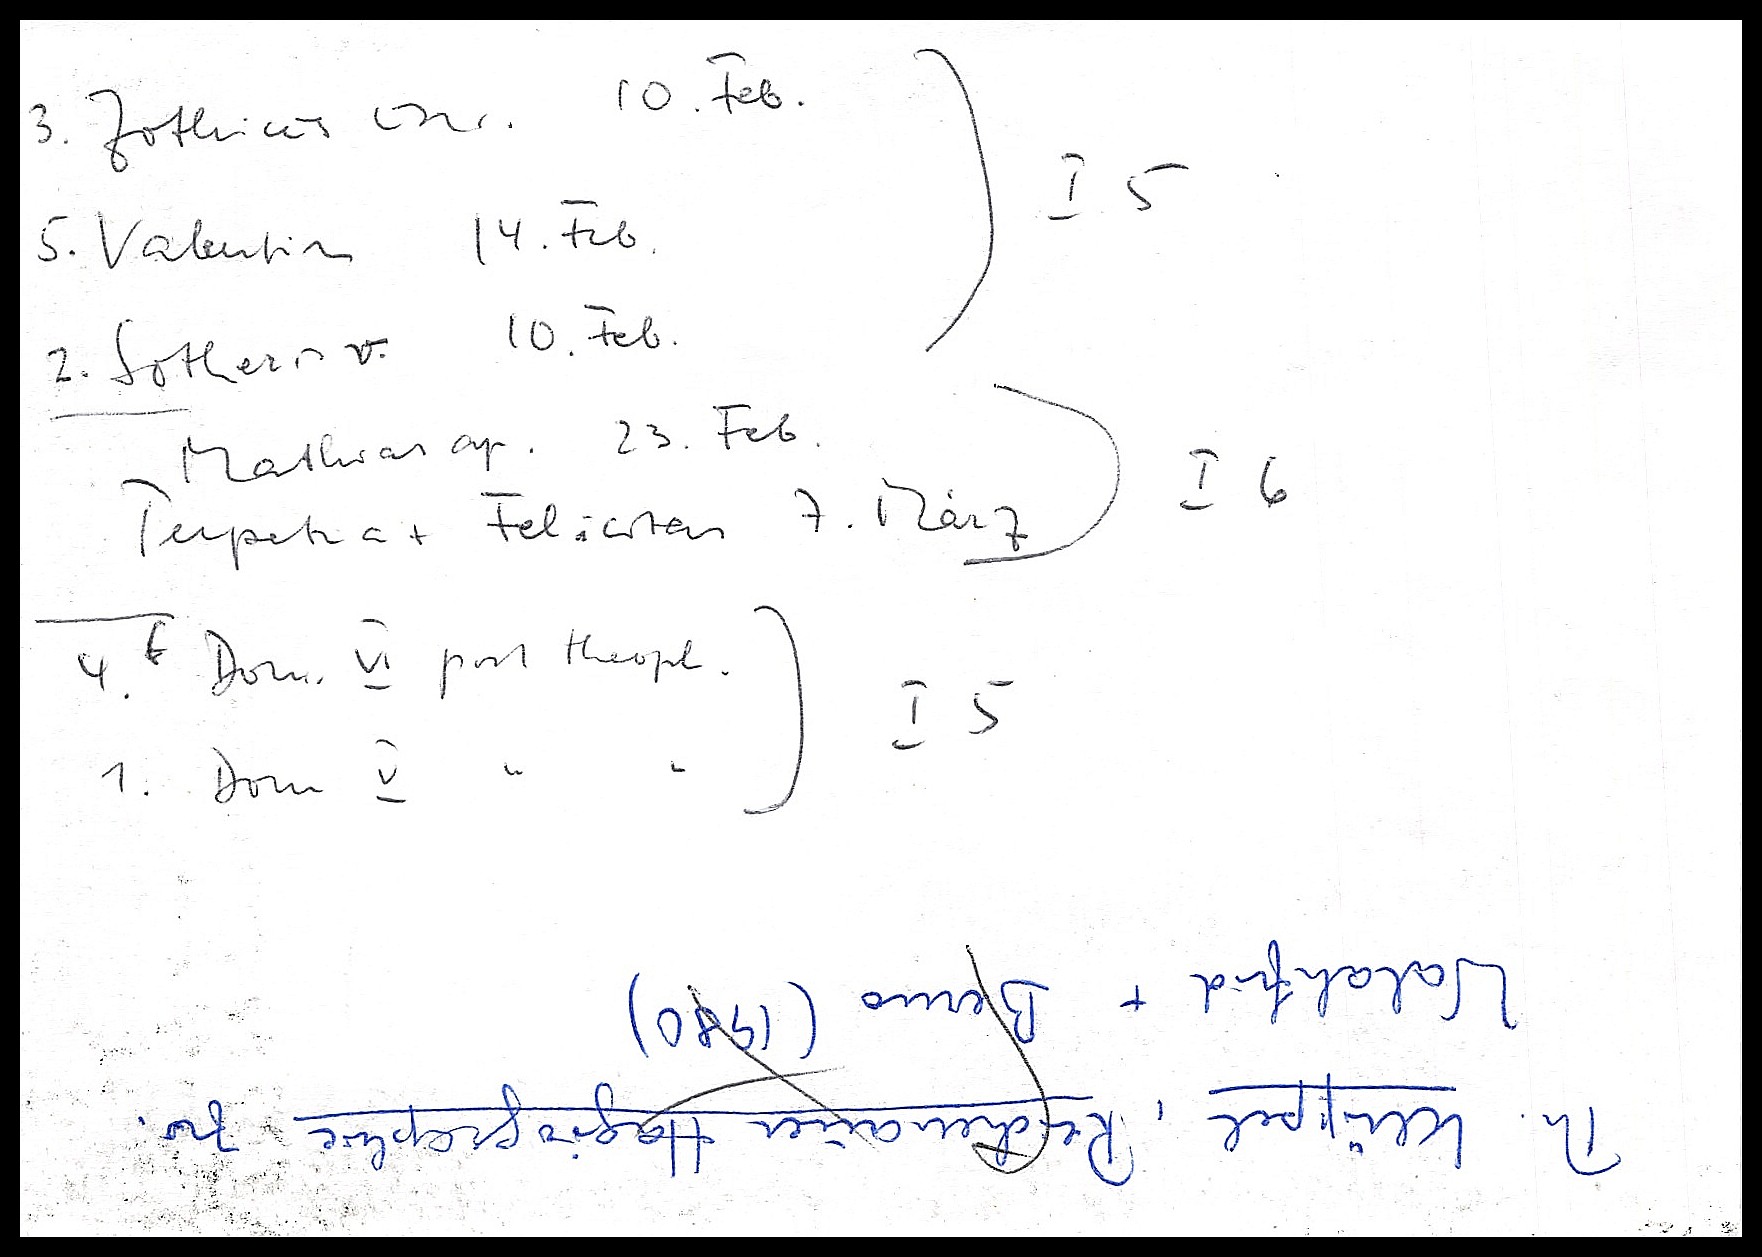 3. Zothicus mr. 10. Feb.
5. Valentin 14. Feb.
I 5
2. Sotheris v. 10. Feb.
Mathias ap. 23. Feb.
Perpetua + Felicitas 7. März
I 6
4. Dom. VI post theoph.
1. Dom V " "
I 5
Th. Klüppel, Reichenauer Hagiographie zw.
Walahfrid + Berno (1980)